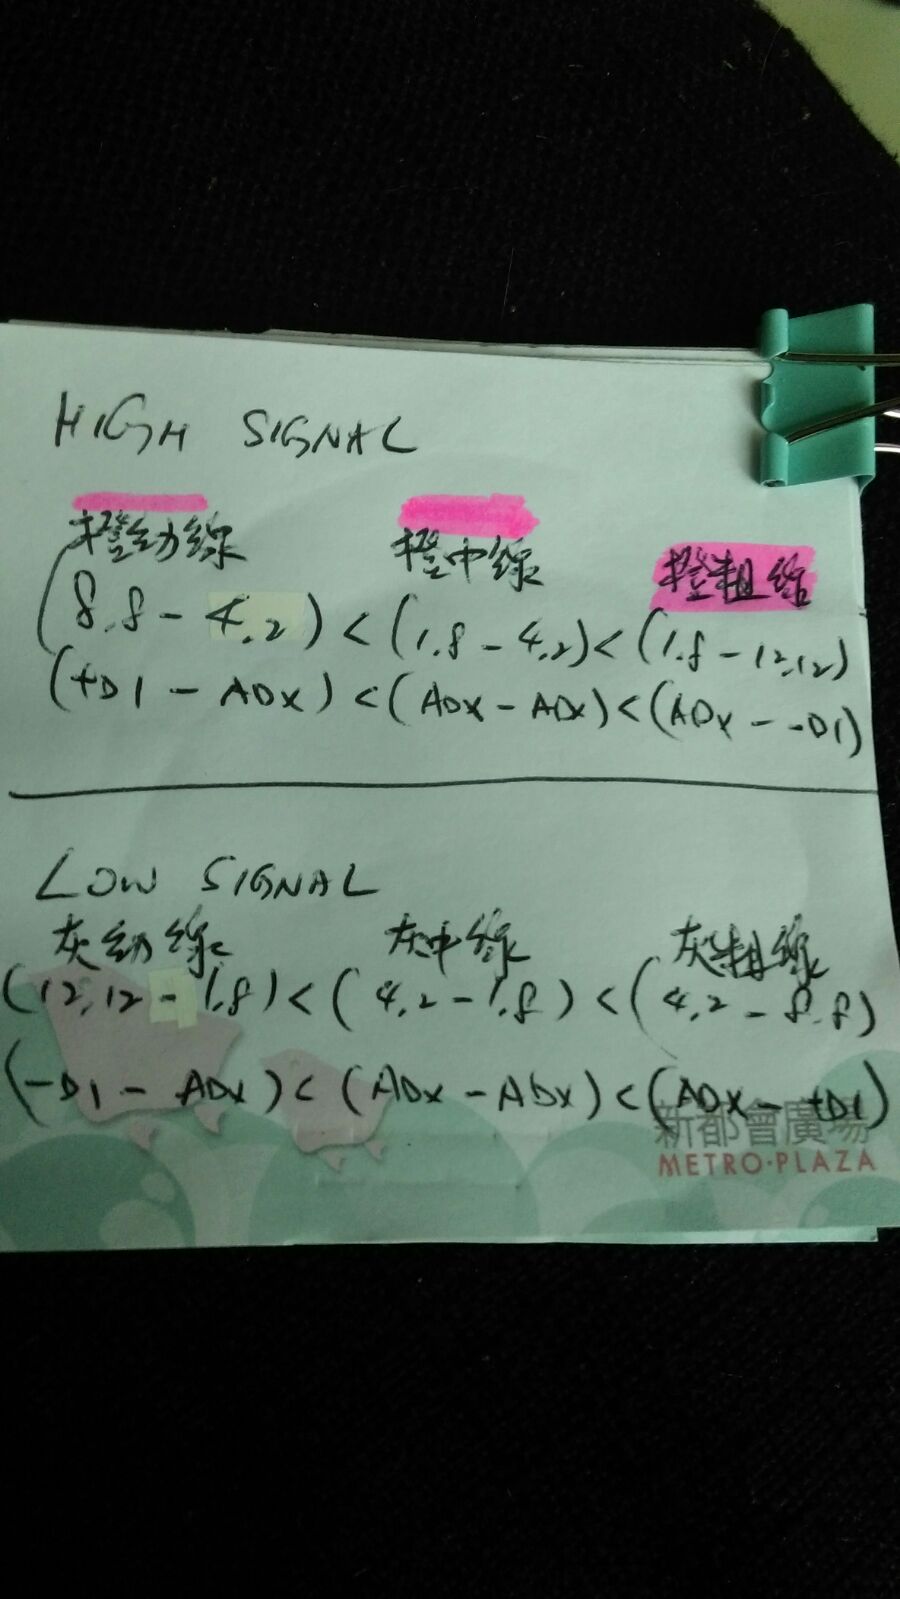 HIGH SIGNAL
橙幼線 橙中線 橙粗線
(8.8 - 4.2) < (1.8 - 4.2) < (1.8 - 12.12)
(+D1 - ADX) < (ADX - ADX) < (ADX - -D1)
LOW SIGNAL
灰幼線 灰中線 灰粗線
(12.12 - 1.8) < (4.2 - 1.8) < (4.2 - 8.8)
(-D1 - ADX) < (ADX - ADX) < (ADX - +D1)
新都會廣場
METRO·PLAZA